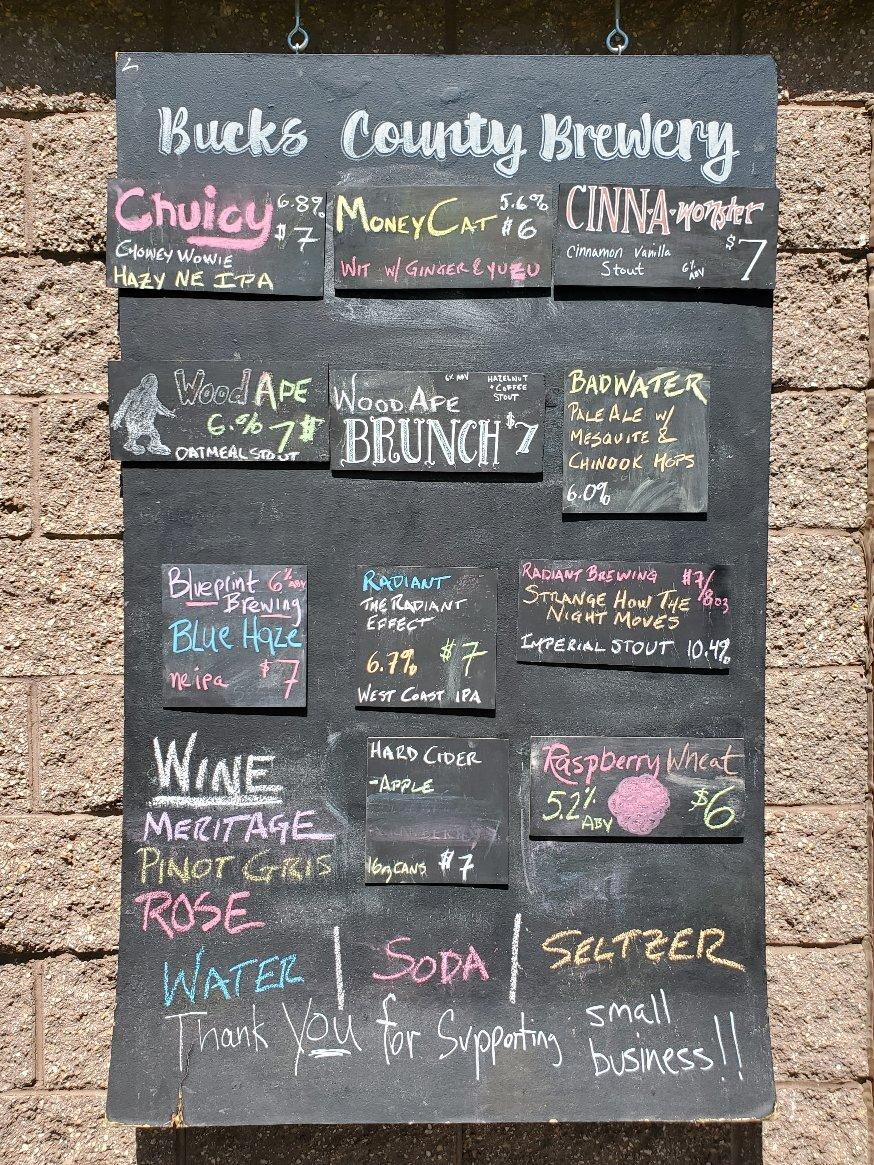 Bucks County Brewery
Chuicy 6.8%
$7
Chowey Wowie
Hazy NE IPA
Money Cat 5.6%
$6
Wit w/ Ginger & Yuzu
CINNA·monster
Cinnamon Vanilla
Stout 6% ABV $7
Wood Ape
6.% 7$
Oatmeal Stout
6% ABV Hazelnut
+ Coffee
Stout
Wood Ape
BRUNCH $7
Badwater
Pale Ale w/
Mesquite &
Chinook Hops
6.0%
Blueprint 6% ABV
Brewing
Blue Haze
neipa $7
Radiant
The Radiant
Effect
6.7% $7
West Coast IPA
Radiant Brewing $7/8oz
Strange How The
Night Moves
Imperial Stout 10.4%
Wine
Meritage
Pinot Gris
Rose
Hard Cider
-Apple
16oz cans $7
Raspberry Wheat
5.2% ABV $6
Water | Soda | Seltzer
Thank you for Supporting small
business!!